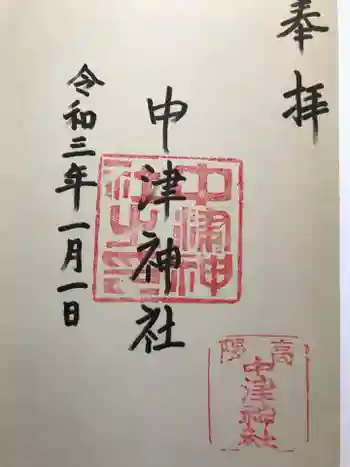 奉拝
中津神社
令和三年一月一日
中津神社之印
高陽
中津神社